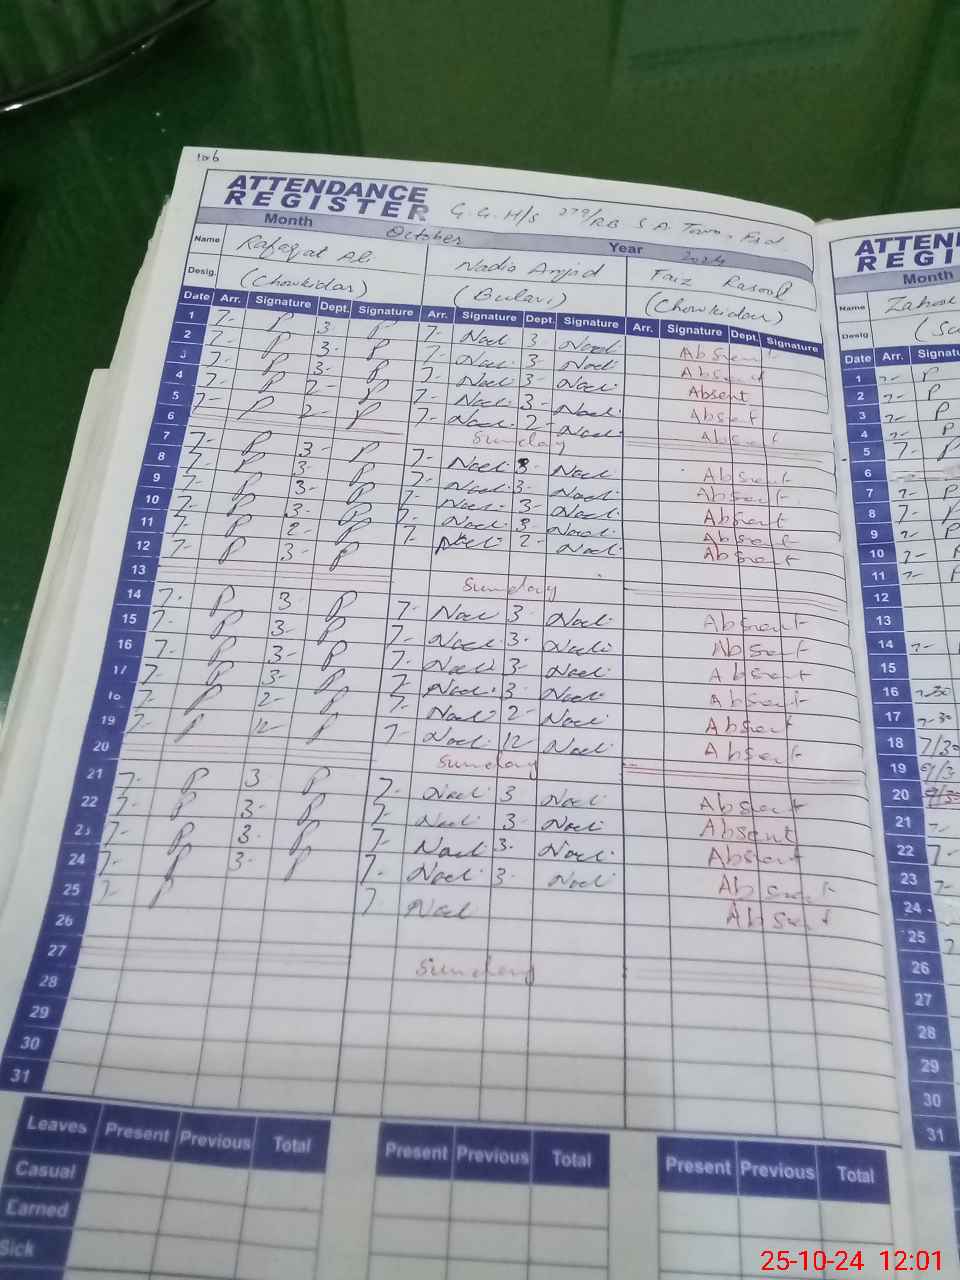 106
ATTENDANCE
REGISTER G.G.H/S 279/RB S.A. Town. Fsd.
Month October Year 2024
Name Rafaqat Ali Nadia Amjid Faiz Rasool
Desig. (Chowkidar) (Bulavi) (Chowkidar)
Date Arr. Signature Dept. Signature Arr. Signature Dept. Signature Arr. Signature Dept. Signature
1 7- P 3 P 7- Nael 3- Nael Absent
2 7- P 3- P 7- Nael 3- Nael Absent
3 7- P 3- P 7- Nael 3- Nael Absent
4 7- P 2- P 7- Nael 3- Nael Absent
5 7- P 2- P 7- Nael 2- Nael Absent
6 Sunday
7 7- P 3- P 7- Nael 3- Nael Absent
8 7- P 3- P 7- Nael 3- Nael Absent
9 7- P 3- P 7- Nael 3- Nael Absent
10 7- P 3- P 7- Nael 3- Nael Absent
11 7- P 2- P 7- Nael 2- Nael Absent
12 7- P 3- P
13 Sunday
14 7- P 3- P 7- Nael 3- Nael Absent
15 7- P 3- P 7- Nael 3- Nael Absent
16 7- P 3- P 7- Nael 3- Nael Absent
17 7- P 3- P 7- Nael 3- Nael Absent
18 7- P 2- P 7- Nael 2- Nael Absent
19 7- P 12- P 7- Nael 12 Nael Absent
20 Sunday
21 7- P 3 P 7- Nael 3 Nael Absent
22 7- P 3- P 7- Nael 3- Nael Absent
23 7- P 3- P 7- Nael 3- Nael Absent
24 7- P 3- P 7- Nael 3- Nael Absent
25 7- P 7- Nael Absent
26
27 Sunday
28
29
30
31
Leaves Present Previous Total Present Previous Total Present Previous Total
Casual
Earned
Sick
ATTEN
REGI
Month
Name
Desig
Date Arr. Signatu
1 7- P
2 7- P
3 7- P
4 7- P
5 7- P
6
7 7- P
8 7- P
9 7- P
10 7- P
11 7- P
12
13
14 7-
15
16 7-30
17 7-30
18 7/30
19
20
21 7-
22 7-
23 7-
24
25 7
26
27
28
29
30
31
25-10-24 12:01